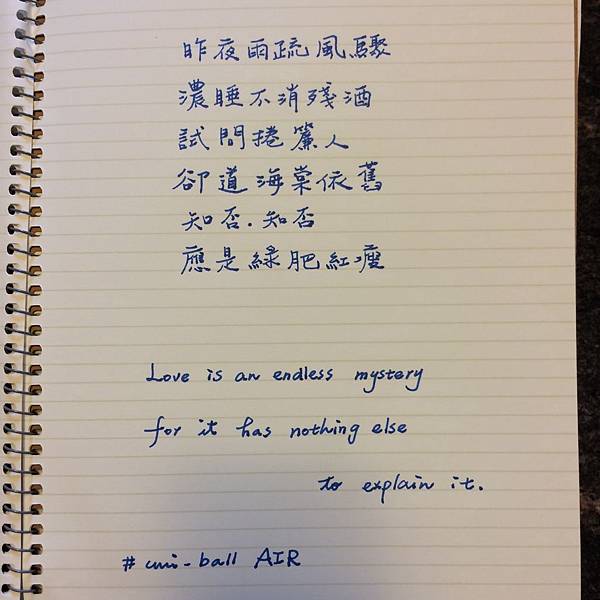 昨夜雨疏風驟
濃睡不消殘酒
試問捲簾人
卻道海棠依舊
知否.知否
應是綠肥紅瘦
Love is an endless mystery
for it has nothing else
to explain it.
# uni-ball AIR